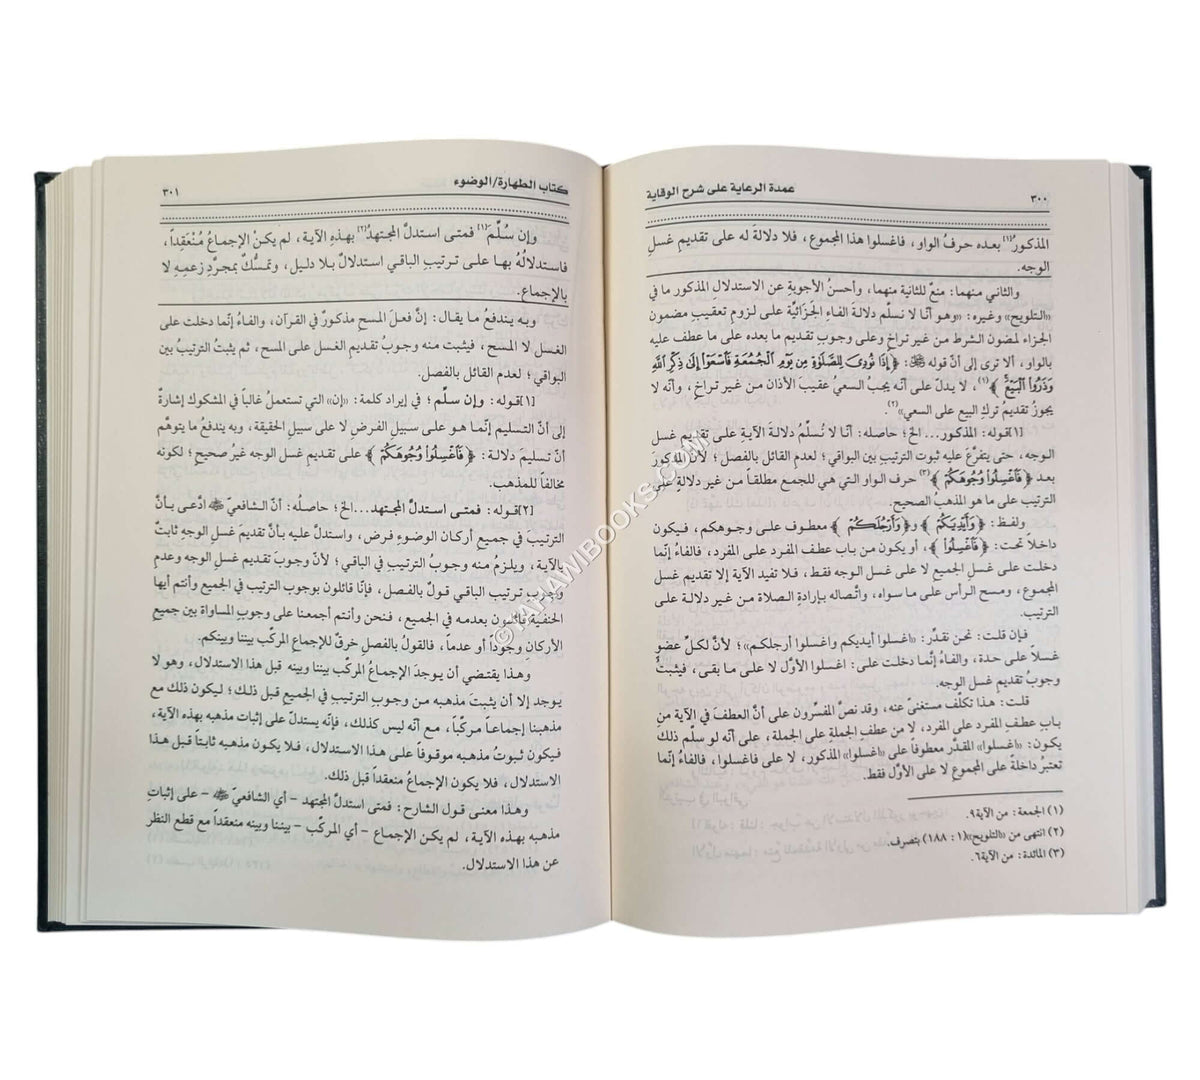 ٣٠٠
عمدة الرعاية على شرح الوقاية
المذكورُ[١] بعده حرفُ الواو، فاغسلوا هذا المجموع، فلا دلالةَ له على تقديمِ غسلِ
الوجه.
والثاني منهما: منعٌ للثانية منهما، وأحسنُ الأجوبةِ عن الاستدلالِ المذكور ما في
«التلويح» وغيره: «وهو أنّا لا نسلّم دلالةَ الفاءِ الجَزَائيَّة على لزومِ تعقيبِ مضمون
الجزاء لمضون الشرط من غير تراخٍ وعلى وجوبِ تقديم ما بعده على ما عطف عليه
بالواو، ألا ترى إلى أنّ قوله ﷻ: ﴿إِذَا نُودِىَ لِلصَّلَوٰةِ مِن يَوْمِ ٱلْجُمُعَةِ فَٱسْعَوْا۟ إِلَىٰ ذِكْرِ ٱللَّهِ
وَذَرُوا۟ ٱلْبَيْعَ﴾(١)، لا يدلّ على أنّه يجبُ السعيُ عقيبَ الأذان من غير تراخٍ، وأنّه لا
يجوزُ تقديمُ تركِ البيع على السعي»(٢).
[١]قوله: المذكور...الخ؛ حاصله: أنّا لا نُسلِّمُ دلالةَ الآيةِ على تقديمِ غسل
الوجه، حتى يتفرَّع عليه ثبوت الترتيب بين البواقي؛ لعدمِ القائل بالفصل؛ لأنّ المذكورَ
بعد ﴿فَٱغْسِلُوا۟ وُجُوهَكُمْ﴾(٣) حرف الواو التي هي للجمعِ مطلقاً من غير دلالةٍ على
الترتيبِ على ما هو المذهبُ الصحيح.
ولفظ: ﴿وَأَيْدِيَكُمْ﴾ و﴿وَأَرْجُلَكُمْ﴾ معطوف على وجوهكم، فيكون
داخلاً تحت: ﴿فَٱغْسِلُوا۟﴾، أو يكون من باب عطف المفرد على المفرد، فالفاءُ إنّما
دخلت على غسلِ الجميع لا على غسل الوجه فقط، فلا تفيد الآية إلا تقديم غسل
المجموع، ومسح الرأس على ما سواه، واتّصاله بإرادةِ الصلاة من غيرِ دلالة على
الترتيب.
فإن قلت: نحن نقدّر: «اغسلوا أيديكم واغسلوا أرجلكم»؛ لأنّ لكلِّ عضوٍ
غسلاً على حدة، والفاءُ إنَّما دخلت على: اغسلوا الأوَّل لا على ما بقى، فيثبتُ
وجوبُ تقديم غسل الوجه.
قلت: هذا تكلّف مستغنىً عنه، وقد نصَّ المفسِّرون على أنَّ العطفَ في الآية من
بابِ عطفِ المفرد على المفرد، لا من عطفِ الجملةِ على الجملة، على أنّه لو سلّم ذلك
يكون: «اغسلوا» المقدّر معطوفاً على «اغسلوا» المذكور، لا على فاغسلوا، فالفاءُ إنّما
تعتبرُ داخلةً على المجموعِ لا على الأوَّل فقط.
(١) الجمعة: من الآية٩.
(٢) انتهى من «التلويح»(١: ١٨٨) بتصرف.
(٣) المائدة: من الآية٦.
كتاب الطهارة/الوضوء
٣٠١
وإن سُلِّمَ[١] فمتى استدلَّ المجتهدُ[٢] بهذِهِ الآية، لم يكنِ الإجماعُ مُنْعَقِداً،
فاستدلالُهُ بها على ترتيبِ الباقي استدلالٌ بلا دليل، وتمسُّكٌ بمجرَّدِ زعمِهِ لا
بالإجماع.
وبه يندفعُ ما يقال: إنَّ فعلَ المسحِ مذكورٌ في القرآن، والفاءُ إنّما دخلت على
الغسل لا المسح، فيثبت منه وجوبُ تقديمِ الغسل على المسح، ثم يثبتُ الترتيبُ بين
البواقي؛ لعدمِ القائل بالفصل.
[١]قوله: وإن سلّم؛ في إيراد كلمة: «إن» التي تستعملُ غالباً في المشكوك إشارةٌ
إلى أنّ التسليم إنّما هو على سبيلِ الفرض لا على سبيلِ الحقيقة، وبه يندفعُ ما يتوهَّم
أنّ تسليمَ دلالة: ﴿فَٱغْسِلُوا۟ وُجُوهَكُمْ﴾ على تقديمِ غسل الوجه غيرُ صحيح؛ لكونه
مخالفاً للمذهب.
[٢]قوله: فمتى استدلّ المجتهد...الخ؛ حاصلُه: أنّ الشافعيّ ﷺ ادّعى بأنَّ
الترتيبَ في جميعِ أركان الوضوءِ فرض، واستدل عليه بأنّ تقديمَ غسل الوجهِ ثابتٌ
بالآية، ويلزمُ منه وجوبُ الترتيب في الباقي؛ لأنّ وجوبَ تقديم غسل الوجه وعدم
وجوبِ ترتيب الباقي قولٌ بالفصل، فإنّا قائلون بوجوب الترتيب في الجميع وأنتم أيها
الحنفيّة قائلون بعدمه في الجميع، فنحن وأنتم أجمعنا على وجوبِ المساواة بين جميعِ
الأركانِ وجُوداً أو عدماً، فالقولُ بالفصلِ خرقٌ للإجماعِ المركّب بيننا وبينكم.
وهذا يقتضي أن يوجدَ الإجماعُ المركّب بيننا وبينه قبل هذا الاستدلال، وهو لا
يوجد إلا أن يثبتَ مذهبه من وجوبِ الترتيب في الجميعِ قبل ذلك؛ ليكون ذلك مع
مذهبنا إجماعاً مركّباً، مع أنّه ليس كذلك، فإنّه يستدلّ على إثبات مذهبه بهذه الآية،
فيكون ثبوتُ مذهبه موقوفاً على هذا الاستدلال، فلا يكون مذهبه ثابتاً قبل هذا
الاستدلال، فلا يكون الإجماعُ منعقداً قبل ذلك.
وهذا معنى قول الشارح: فمتى استدلّ المجتهد – أي الشافعيّ ﷺ – على إثباتِ
مذهبه بهذه الآية، لم يكن الإجماع – أي المركّب – بيننا وبينه منعقداً مع قطعِ النظر
عن هذا الاستدلال.
© TAHAWIBOOKS.COM